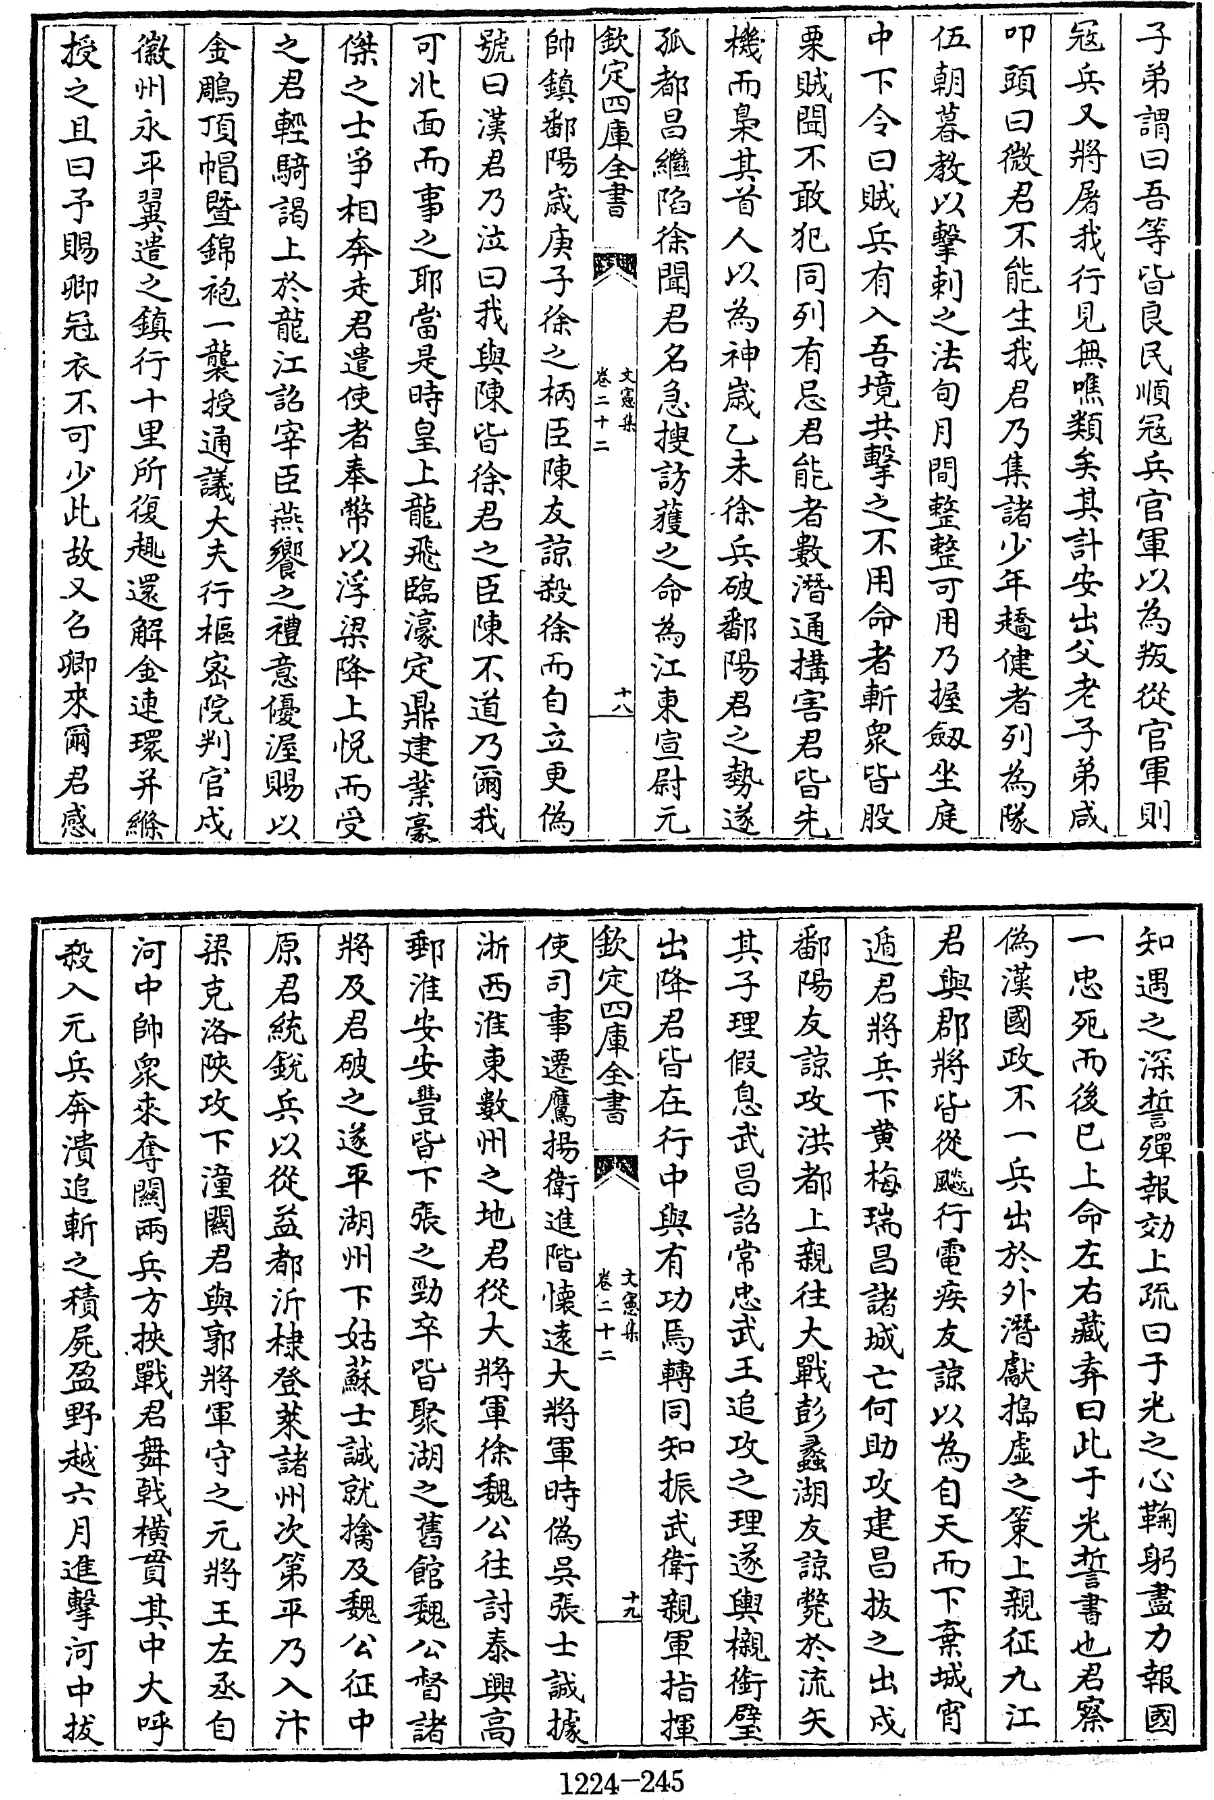 子弟謂曰吾等皆良民順冦兵官軍以為叛從官軍則
冦兵又將屠我行見無噍類矣其計安出父老子弟咸
叩頭曰微君不能生我君乃集諸少年趫健者列為隊
伍朝暮教以擊刺之法旬月間整整可用乃握劔坐庭
中下令曰賊兵有入吾境共擊之不用命者斬衆皆股
栗賊聞不敢犯同列有忌君能者數潛通搆害君皆先
機而梟其首人以為神歳乙未徐兵破鄱陽君之勢遂
孤都昌繼陷徐聞君名急搜訪獲之命為江東宣尉元
欽定四庫全書
文憲集
卷二十二
十八
帥鎮鄱陽歳庚子徐之柄臣陳友諒殺徐而自立更偽
號曰漢君乃泣曰我與陳皆徐君之臣陳不道乃爾我
可北面而事之耶當是時皇上龍飛臨濠定鼎建業豪
傑之士爭相奔走君遣使者奉幣以浮梁降上悅而受
之君輕騎謁上於龍江詔宰臣燕饗之禮意優渥賜以
金鵰頂帽暨錦袍一襲授通議大夫行樞密院判官戍
徽州永平翼遣之鎮行十里所復趣還解金連環并絛
授之且曰予賜卿冠衣不可少此故又召卿來爾君感
知遇之深誓殫報効上疏曰于光之心鞠躬盡力報國
一忠死而後已上命左右藏弆曰此于光誓書也君察
偽漢國政不一兵出於外潛獻搗虛之策上親征九江
君與郡將皆從飈行電疾友諒以為自天而下棄城宵
遁君將兵下黄梅瑞昌諸城亡何助攻建昌拔之出戍
鄱陽友諒攻洪都上親往大戰彭蠡湖友諒斃於流矢
其子理假息武昌詔常忠武王追攻之理遂輿櫬銜璧
出降君皆在行中與有功焉轉同知振武衛親軍指揮
欽定四庫全書
文憲集
卷二十二
十九
使司事遷鷹揚衛進階懷遠大將軍時偽吳張士誠據
浙西淮東數州之地君從大將軍徐魏公往討泰興高
郵淮安安豐皆下張之勁卒皆聚湖之舊館魏公督諸
將及君破之遂平湖州下姑蘇士誠就擒及魏公征中
原君統銳兵以從益都沂棣登萊諸州次第平乃入汴
梁克洛陝攻下潼關君與郭將軍守之元將王左丞自
河中帥衆來奪關兩兵方挾戰君舞戟橫貫其中大呼
殺入元兵奔潰追斬之積屍盈野越六月進擊河中拔
1224-245